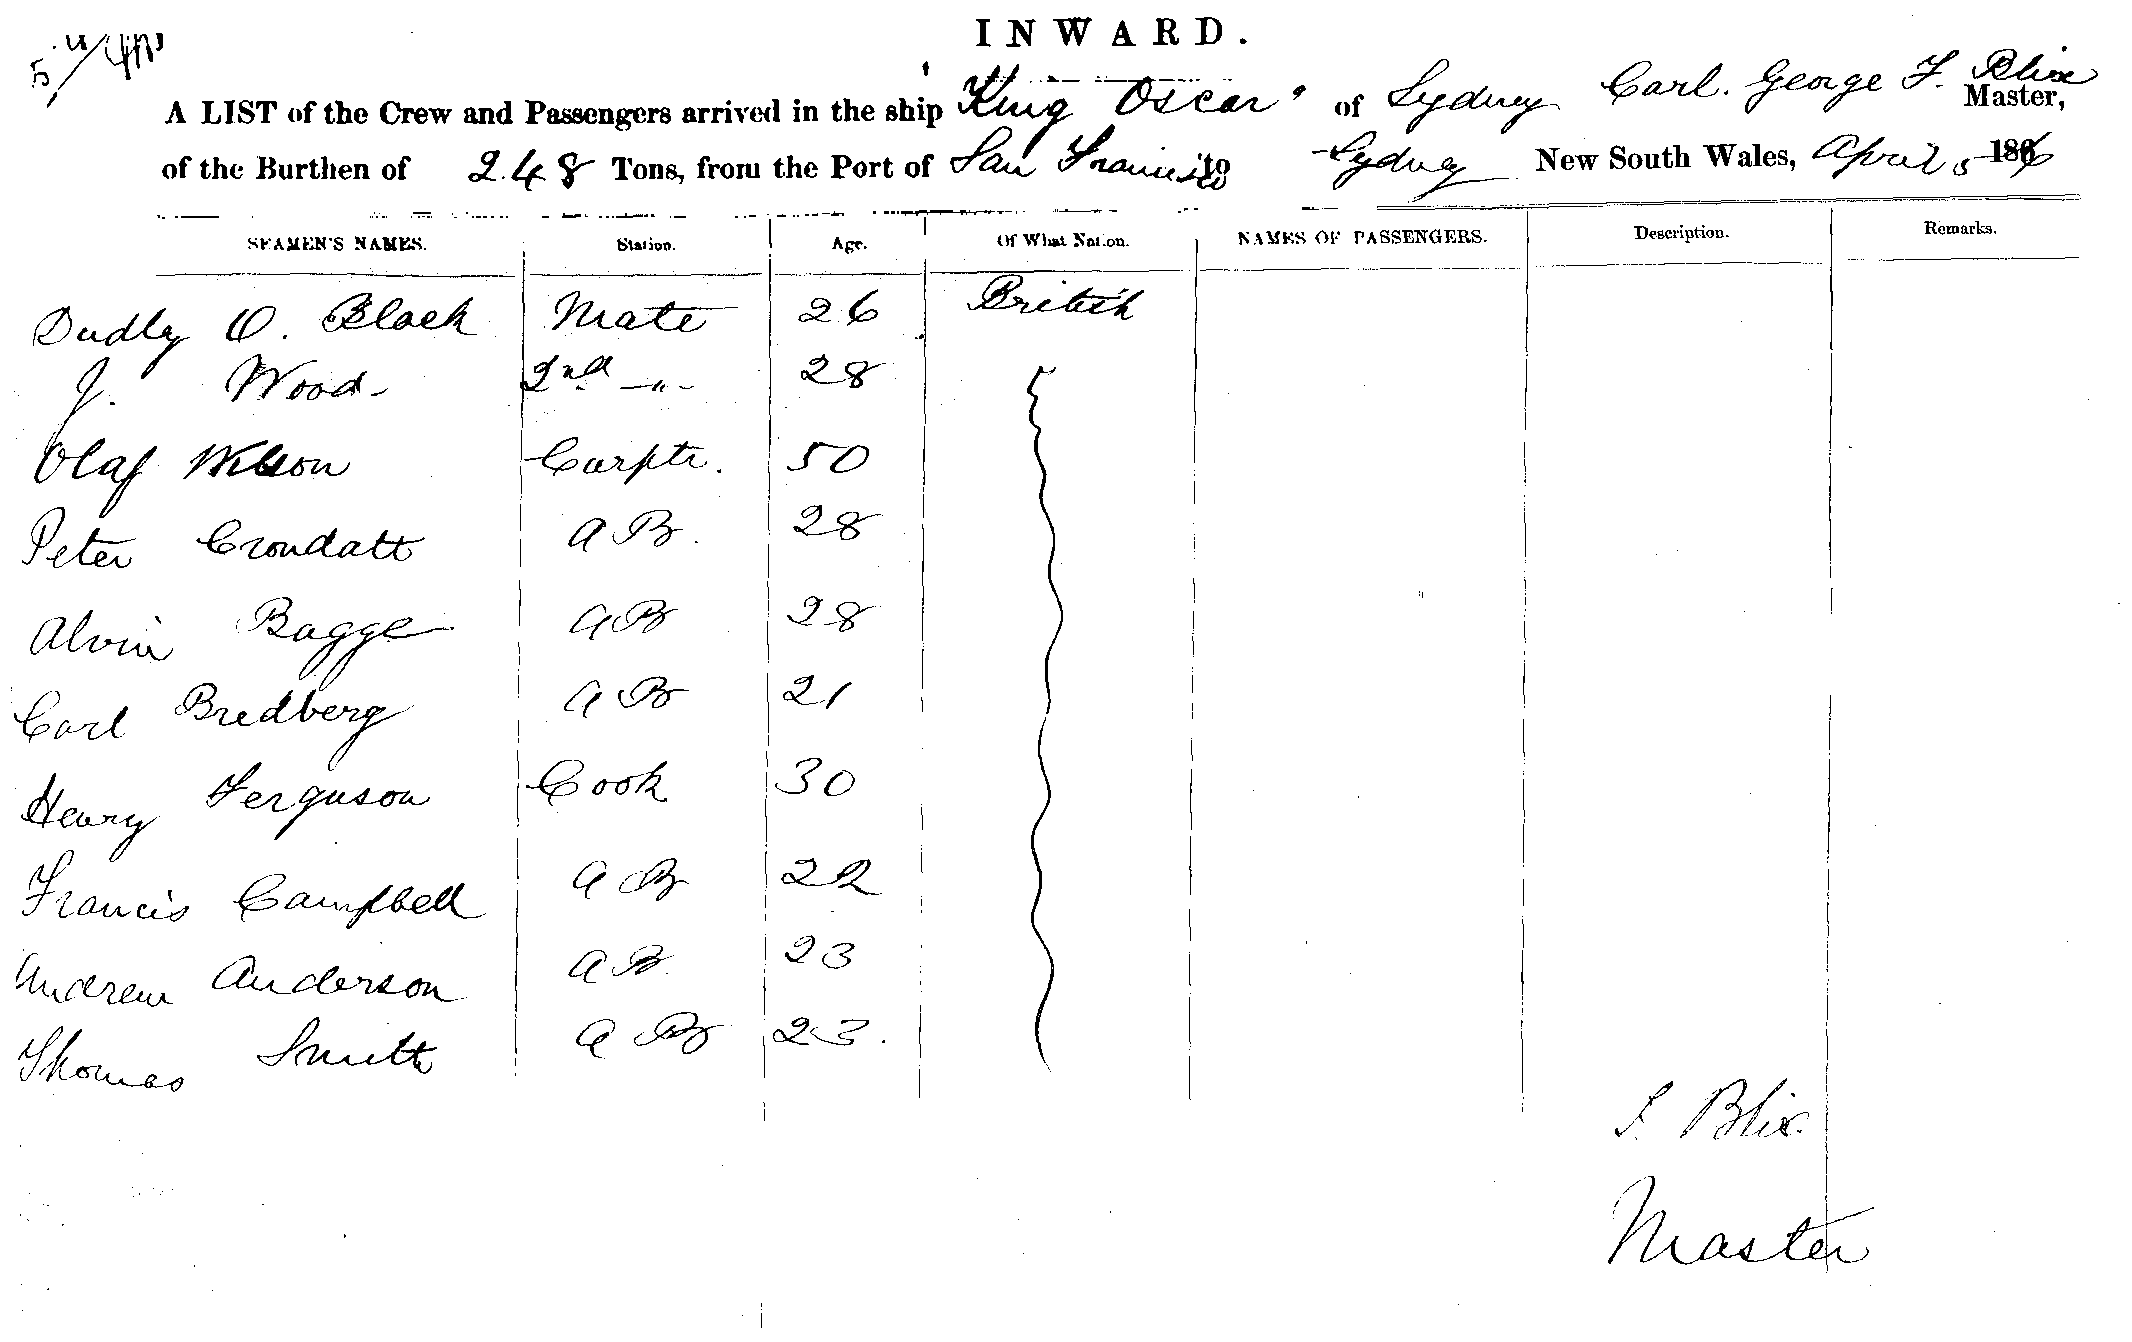 INWARD.
A LIST of the Crew and Passengers arrived in the ship "King Oscar" of Sydney Carl. George F. Blix Master,
of the Burthen of 248 Tons, from the Port of San Francisco to Sydney New South Wales, April 5 186
SEAMEN'S NAMES. Station. Age. Of What Nation. NAMES OF PASSENGERS. Description. Remarks.
Dudly O. Black Mate 26 British
J. Wood 2nd -"- 28
Olaf 50 Carptr.
Peter Crondatt A B. 28
Alvin Bagge A B 28
Carl Bredberg A B 21
Henry Ferguson Cook 30
Francis Campbell A B 22
Andrew Anderson A B 23
Thomas Smith A B 23.
F. Blix.
Master